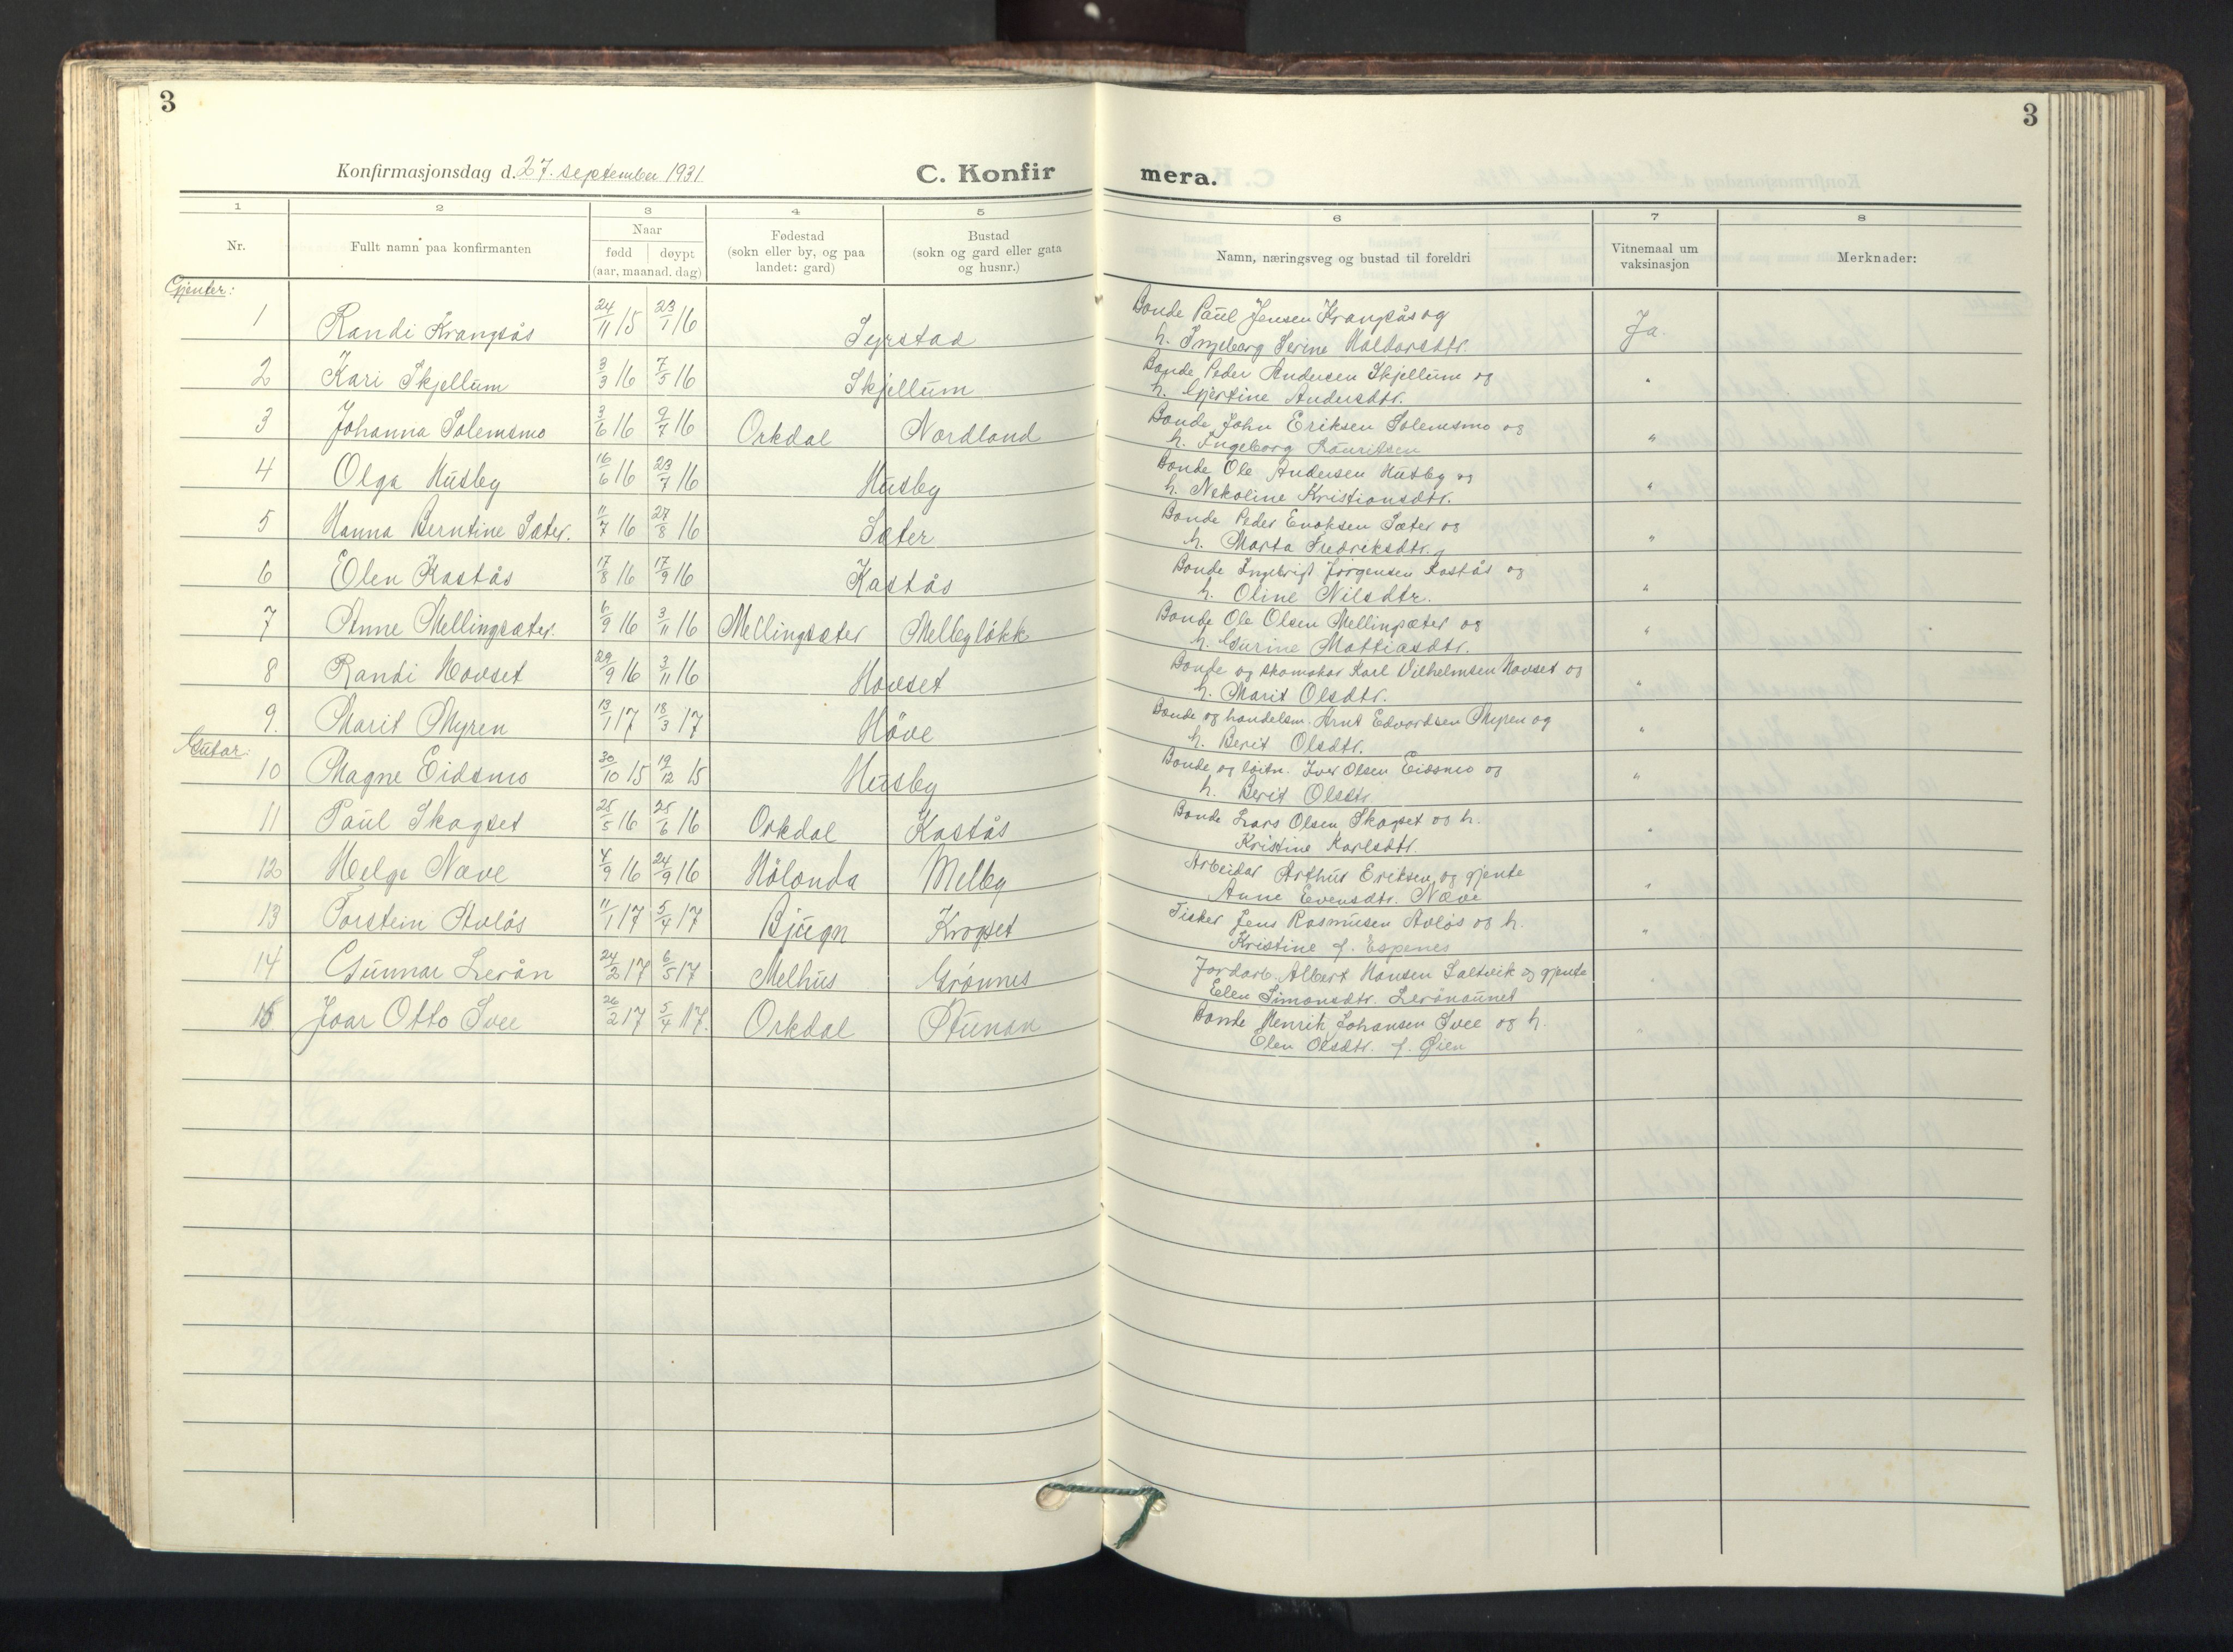 3
3
Konfirmasjonsdag d. 27. september 1931
C. Konfir
mera.
1 2 3 4 5 6 7 8
Nr.
Fullt namn paa konfirmanten
Naar
fødd døypt
(aar, maanad. dag)
Fødestad
(sokn eller by, og paa
landet: gard)
Bustad
(sokn og gard eller gata
og husnr.)
Namn, næringsveg og bustad til foreldri
Vitnemaal um
vaksinasjon
Merknader:
Gjenter:
1 Randi Krangsås 24/11 15 23/1 16 Syrstad Bonde Paul Jensen Krangsås og
h. Ingeborg Serine Haldorsdtr. Ja.
2 Kari Skjellum 3/3 16 7/5 16 Skjellum Bonde Peder Andersen Skjellum og
h. Gjertine Andersdtr. "
3 Johanna Solemsmo 3/6 16 9/7 16 Orkdal Nordland Bonde John Eriksen Solemsmo og
h. Ingeborg Lauritsen "
4 Olga Husby 16/6 16 23/7 16 Husby Bonde Ole Andersen Husby og
h. Nekoline Kristiansdtr. "
5 Hanna Berntine Sæter. 11/7 16 27/8 16 Sæter Bonde Peder Enoksen Sæter og
h. Marta Fredriksdtr. "
6 Elen Kastås 17/8 16 17/9 16 Kastås Bonde Ingebrigt Jørgensen Kastås og
h. Oline Nilsdtr. "
7 Anne Mellingsæter. 6/9 16 3/11 16 Mellingsæter Melbyløkk Bonde Ole Olsen Mellingsæter og
h. Gurine Mattiasdtr. "
8 Randi Hovset 29/9 16 3/11 16 Hovset Bonde og skomakar Karl Vilhelmsen Hovset og
h. Marit Olsdtr. "
9. Marit Myren 13/1 17 18/3 17 Höve Bonde og handelsm. Arnt Edvardsen Myren og
h. Berit Olsdtr. "
Gutar:
10 Magne Eidsmo 30/10 15 19/12 15 Husby Bonde og løitn. Iver Olsen Eidsmo og
h. Berit Olsdtr. "
11 Paul Skogset 25/5 16 25/6 16 Orkdal Kastås Bonde Lars Olsen Skogset og h.
Kristine Karlsdtr. "
12 Helge Næve 4/9 16 24/9 16 Hölonda Melby Arbeidar Arthur Eriksen og gjente
Anne Evensdtr. Næve "
13 Torstein Avløs 11/1 17 5/4 17 Bjugn Krogset Fisker Jens Rasmusen Avløs og h.
Kristine f. Espenes "
14 Gunnar Lerån 24/2 17 6/5 17 Melhus Grönnes Jordarb. Albert Hansen Saltvik og gjente
Elen Simonsdtr. Lerånaunet "
15 Joar Otto Svee 26/2 17 5/4 17. Orkdal Stunan Bonde Henrik Johansen Svee og h.
Elen Olsdtr. f. Øien "